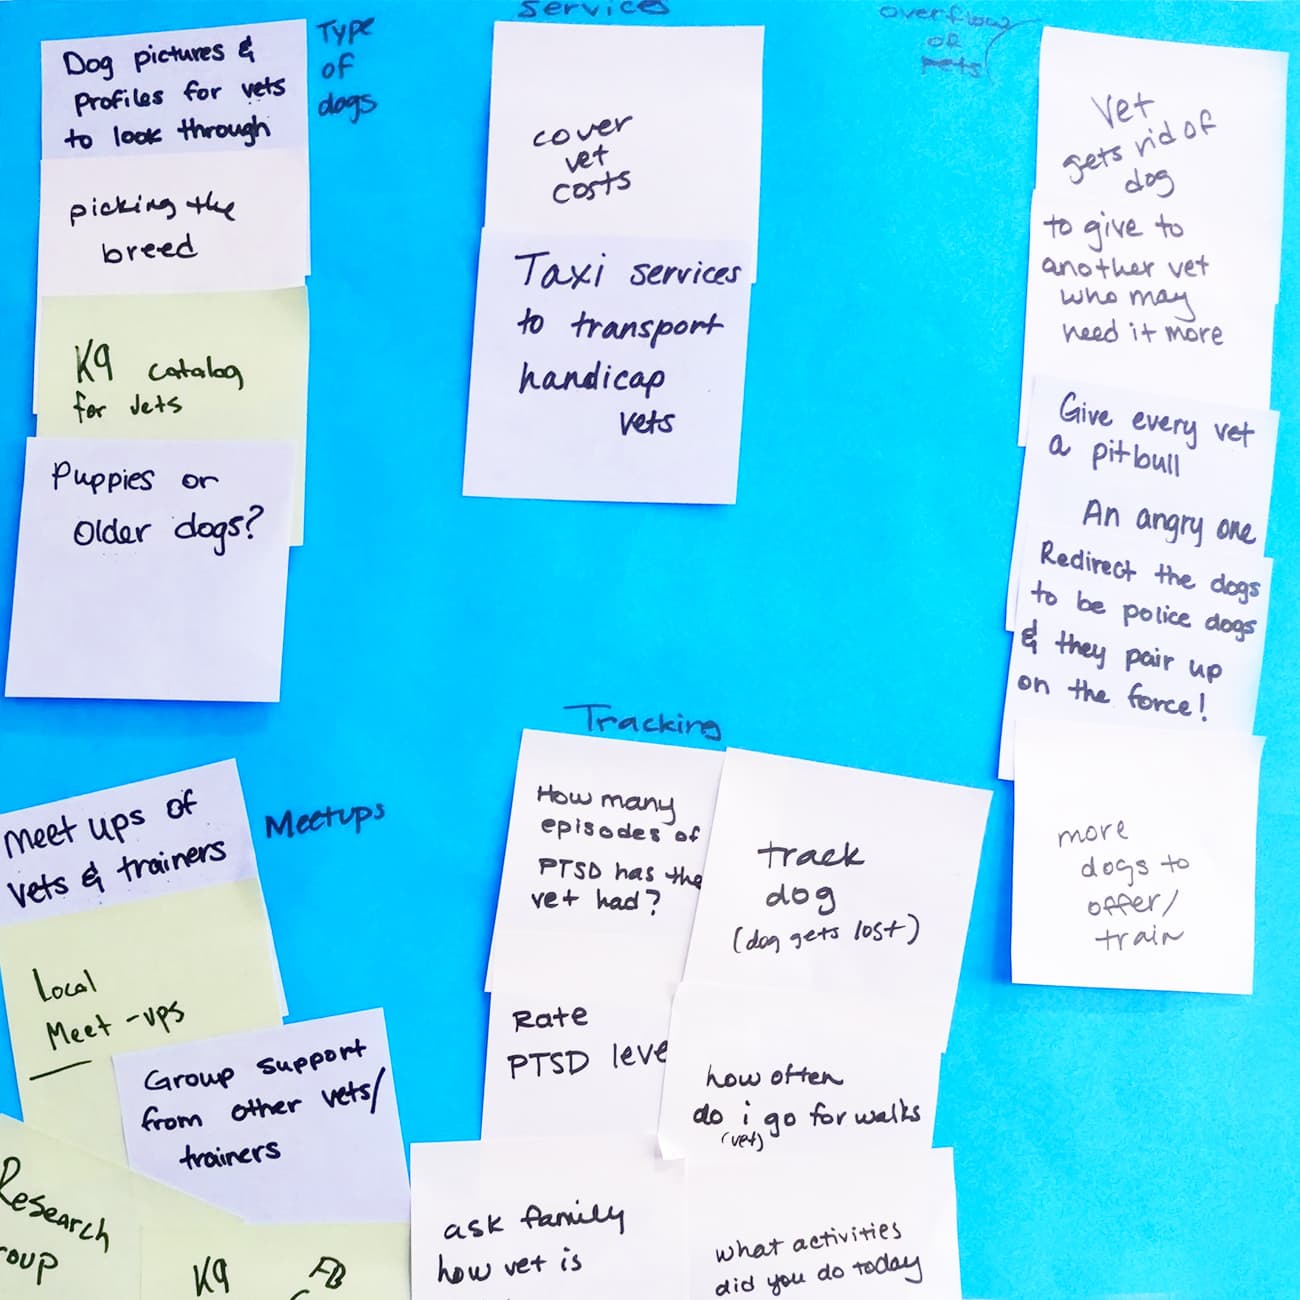 Dog pictures &
profiles for vets
to look through
Type
of
dogs
picking the
breed
K9 catalog
for vets
Puppies or
Older dogs?
Service
cover
vet
costs
Taxi services
to transport
handicap
vets
overflow
of
pets
Vet
gets rid of
dog
to give to
another vet
who may
need it more
Give every vet
a pitbull
An angry one
Redirect the dogs
to be police dogs
& they pair up
on the force!
more
dogs to
offer/
train
Meet ups of
vets & trainers
Meetups
Local
Meet-ups
Group support
from other vets/
trainers
Research
roup
K9
FB
Tracking
How many
episodes of
PTSD has the
vet had?
track
dog
(dog gets lost)
Rate
PTSD leve
how often
do i go for walks
(vet)
ask family
how vet is
what activities
did you do today